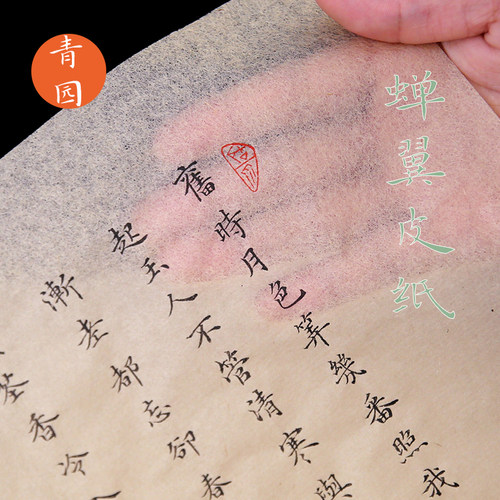 青园
蝉翼皮纸
舊時月色筭幾番照我
起玉人不管清寒與
漸老都忘卻春
香冷